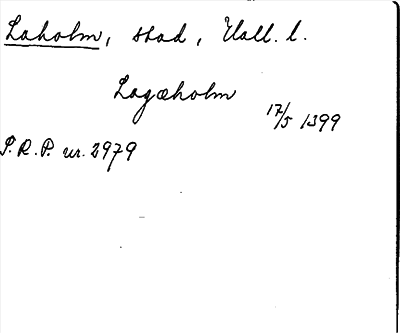 Laholm, stad, Hall. l.
Lagæholm
17/5 1399
S.R.P. nr. 2979